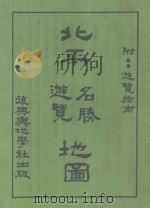 附：遊覽指南
北平
名勝
遊覽
地圖
復興輿地學社出版